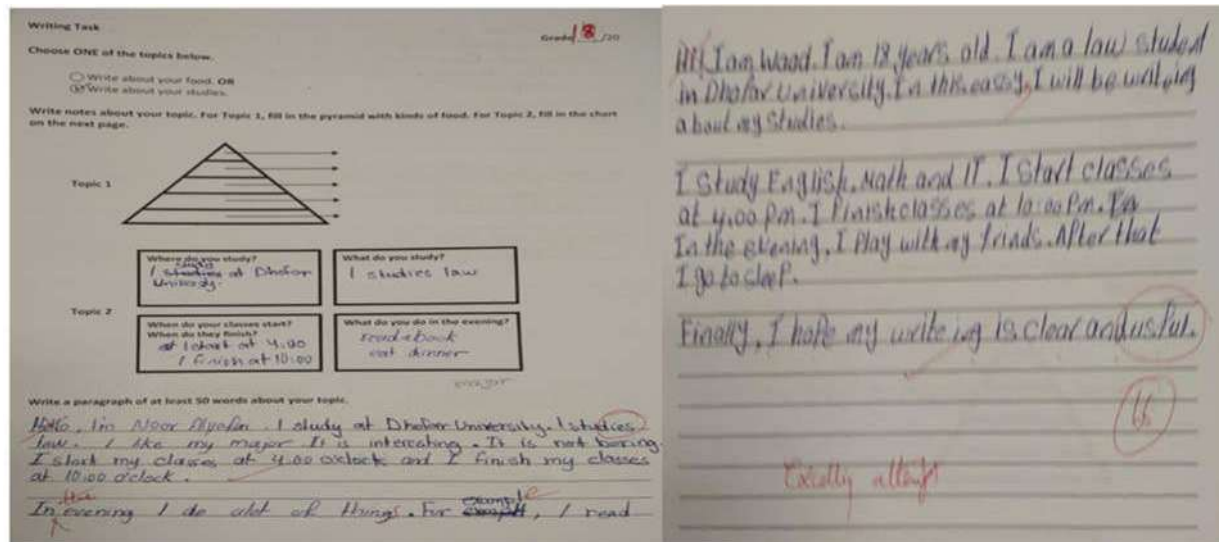 Writing Task
Grade 18 /20
Choose ONE of the topics below.
Write about your food. OR
Write about your studies.
Write notes about your topic. For Topic 1, fill in the pyramid with kinds of food. For Topic 2, fill in the chart
on the next page.
Topic 1
Where do you study?
I studies at Dhofar
What do you study?
I studies law
Topic 2
When do your classes start?
When do they finish?
I start at 4:00
I finish at 10:00
What do you do in the evening?
read a book
eat dinner
major
Write a paragraph of at least 50 words about your topic.
Hello, I'm Noor. I study at Dhofar University. I studies
law. I like my major. It is interesting. It is not boring.
I start my classes at 4.00 o'clock and I finish my classes
at 10:00 o'clock.
the
In evening I do alot of things. For example, I read
Hi, I am Waad. I am 18 years old. I am a law student
in Dhofar University. In this eassy, I will be writeing
about my studies.
I study English, Math and IT. I start classes
at 4:00 Pm. I finish classes at 10:00 Pm.
In the evening, I play with my frinds. After that
I go to sleep.
Finally, I hope my writeing is clear and usful.